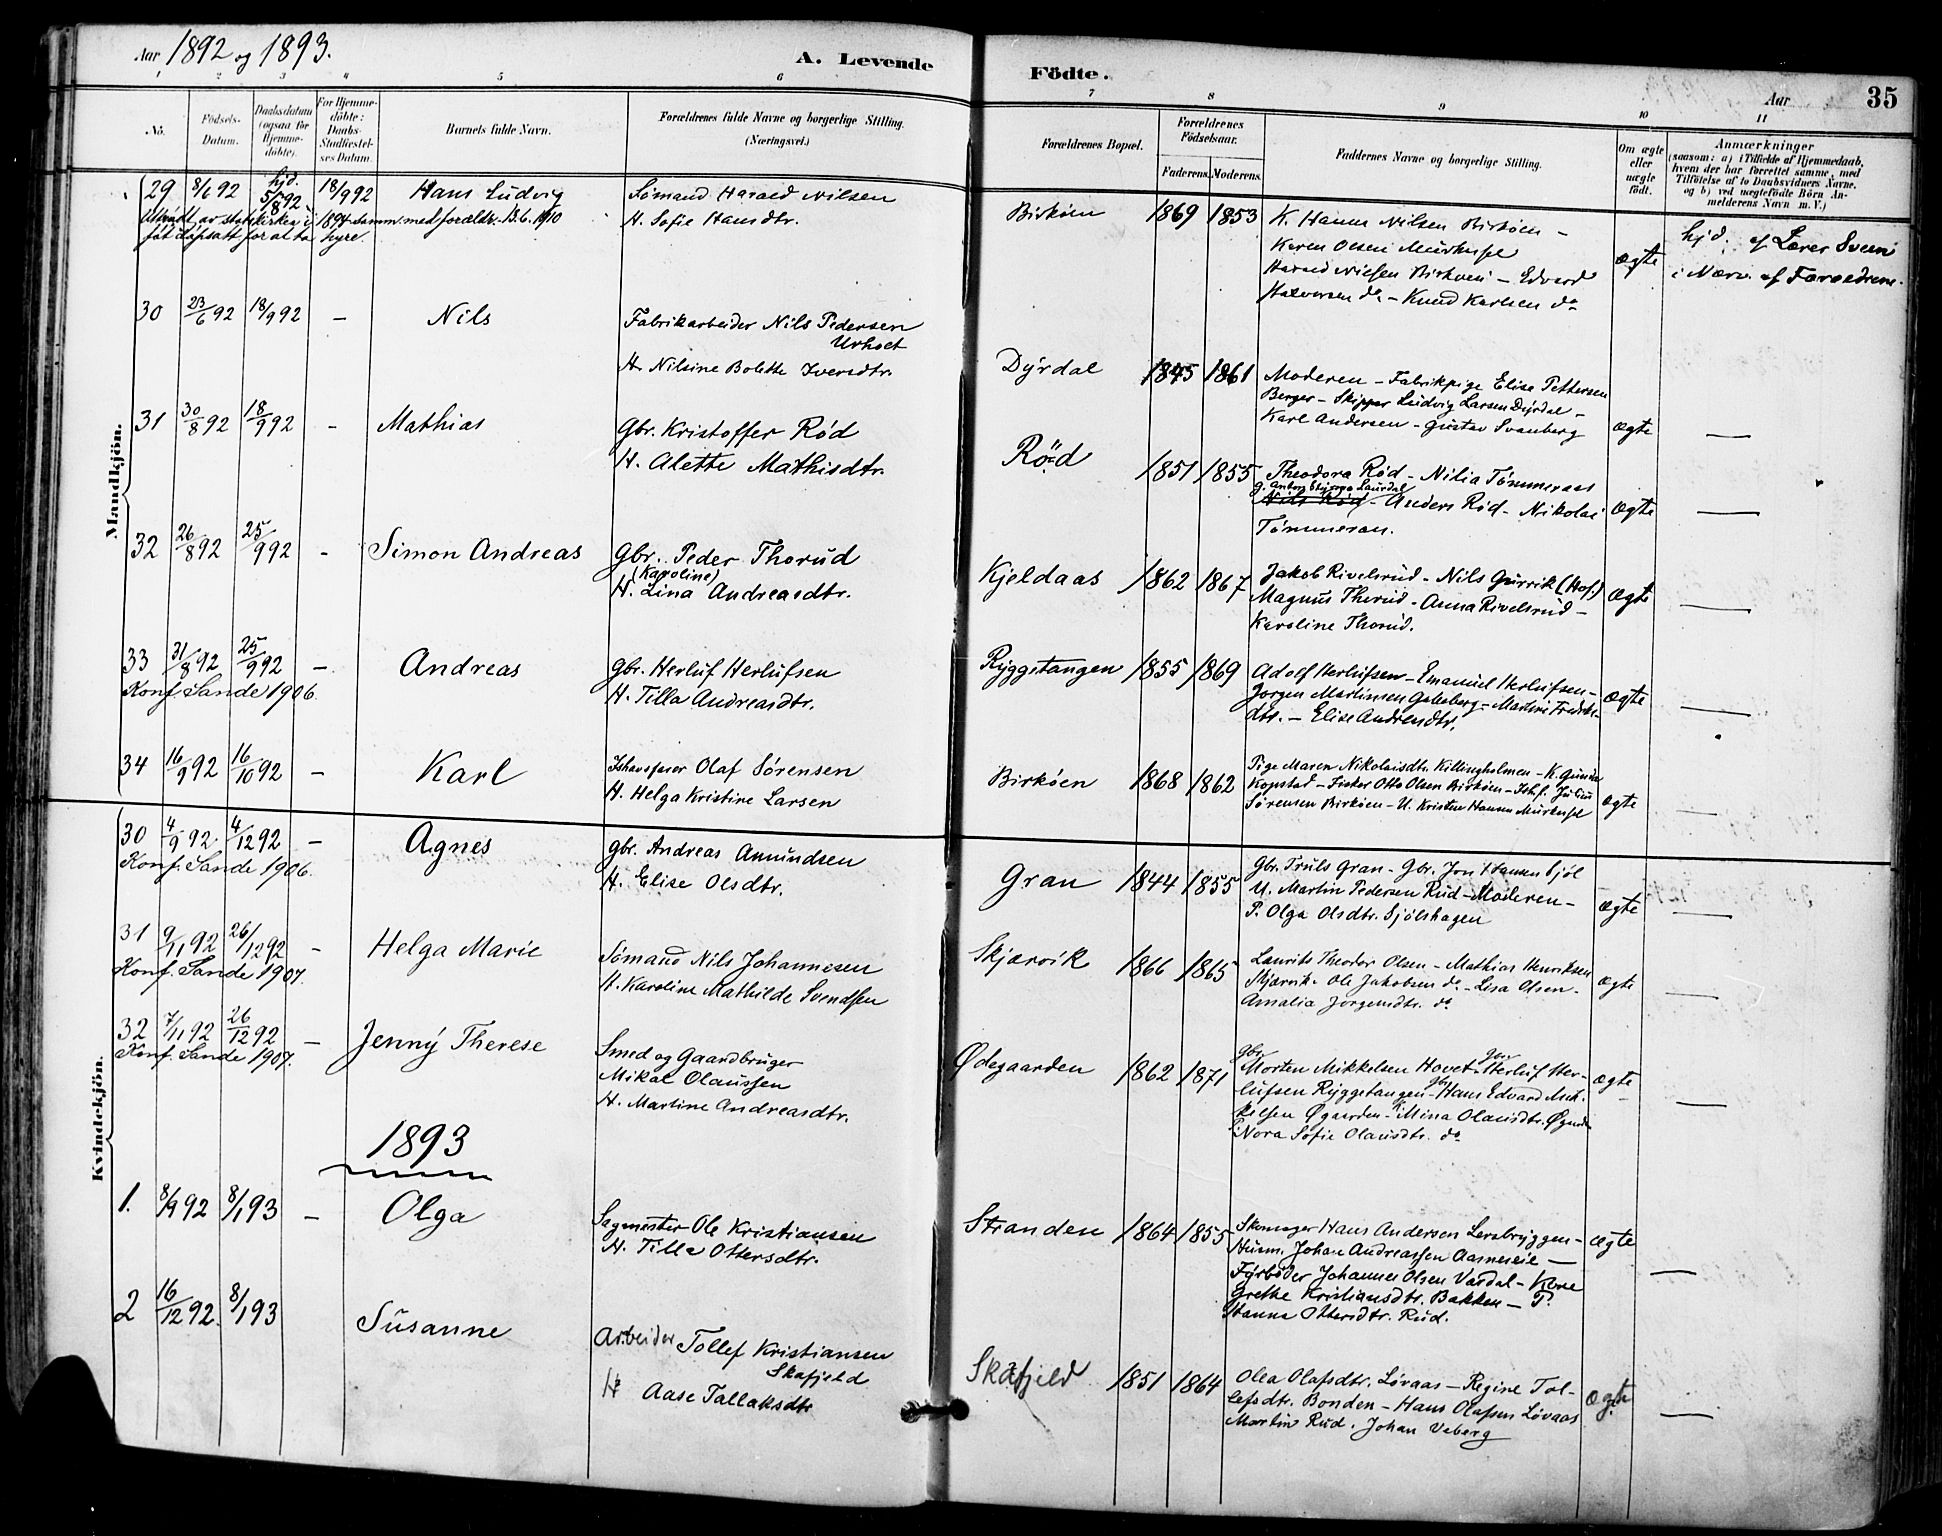 Aar 1892 og 1893.
A. Levende Födte.
Aar 35
1 2 3 4 5 6 7 8 9 10 11
No.
Födsels-Datum.
Daabsdatum (ogsaa for Hjemme-döbte).
For Hjemme-döbte: Daabs-Stadfæstel-ses Datum.
Barnets fulde Navn.
Forældrenes fulde Navne og borgerlige Stilling. (Næringsvei.)
Forældrenes Bopæl.
Forældrenes Födselsaar.
Faderens. Moderens.
Faddernes Navne og borgerlige Stilling.
Om ægte eller uægte födt.
Anmærkninger
(saasom: a) i Tilfælde af Hjemmedaab, hvem der har forrettet samme, med Tilföielse af to Daabsvidners Navne. og b) ved uægtefödte Börn An-melderens Navn m. V.)
Mandkjön.
29 8/6 92 hjd. 5/8 92 18/9 92 Hans Ludvig
Sømand Harald Nilsen
H. Sofie Hansdtr.
Utmeldt av statskirken i 1894 samm. med forældr. 13.6.1910
føt dåpsatt for at ta hyre.
Birkøen 1869 1853
K. Hanna Nilsen Birkøen –
Karen Olsen Mürtnespl
Harald Nielsen Birkøen – Edvard
Halvorsen do – Knud Karlsen do
ægte
hjd. af Lærer Sveen
i Nærv. af Forældrene.
30 23/6 92 18/9 92 – Nils
Fabrikarbeider Nils Pedersen
Urholt
H. Nilsine Bolette Iversdtr.
Dyrdal 1845 1861
Moderen – Fabrikpige Elise Pettersen
Berger – Skipper Ludvig Larsen Dyrdal –
Karl Andersen – Gustav Svanberg
ægte –
31 30/8 92 18/9 92 – Mathias
Gbr. Kristoffer Rød
H. Alette Mathisdtr.
Rød 1851 1855
Theodora Rød – Nilia Tømmeraas
Nils Rød – Anders Rød – Nikolai
Tømmeraas.
ægte –
32 26/8 92 25/9 92 – Simon Andreas
Gbr. Peder Thorud
(Karoline)
H. Lina Andreasdtr.
Kjeldaas 1862 1867
Jakob Rivelsrud – Nils Gurrik (Hof.)
Magnus Thorud – Anna Rivelsrud –
Karoline Thorud.
ægte –
33 31/8 92 25/9 92 – Andreas
Konf. Sande 1906.
Gbr. Herluf Herlufsen
H. Tilla Andreasdtr.
Ryggetangen 1855 1869
Adolf Herlufsen – Emanuel Herlufsen –
Jørgen Martinsen Galleberg – Martine Fredriks-
dtr. – Elise Andreasdtr.
ægte –
34 16/9 92 16/10 92 – Karl
Ishavsfarer Olaf Sørensen
H. Helga Kristine Larsen
Birkøen 1868 1862
Pige Maren Nikolaisdtr. Killingholmen – K. Gunda
Kopstad – Fisker Otto Olsen Birkøen – Ishf. Julius
Sørensen Birkøen – U. Kristen Hansen Mürtnespl
ægte –
Kvindekjön.
30 4/9 92 4/12 92 – Agnes
Konf. Sande 1906.
Gbr. Andreas Amundsen
H. Elise Olsdtr.
Gran 1844 1855
Gbr. Truls Gran – Gbr. Jon Hansen Sjøl
U. Martin Pedersen Rud – Moderen –
P. Olga Olsdtr. Sjølshagen
ægte –
31 9/11 92 26/12 92 – Helga Marie
Konf. Sande 1907.
Sømand Nils Johannesen
H. Karoline Mathilde Svendsen
Skjærvik 1866 1865
Laurits Theodor Olsen – Mathias Henriksen
Skjærvik – Ole Jakobsen do – Lisa Olsen –
Amalia Jørgensdtr. do
ægte –
32 7/11 92 26/12 92 – Jenny Therese
Konf. Sande 1907.
Smed og Gaardbruger
Mikal Olaussen
H. Martine Andreasdtr.
Ødegaarden 1862 1871
Gbr. Morten Mikkelsen Hovet – Gbr. Herluf Her-
lufsen Ryggetangen – Gbr. Hans Edvard Mik-
kelsen Øgaarden – P. Mina Olausdtr. Øgarden
P. Nora Sofie Olausdtr. do
ægte –
1893
1. 8/9 92 8/1 93 – Olga
Sagmester Ole Kristiansen
H. Tilla Ottersdtr.
Stranden 1864 1855
Skomager Hans Andersen Lersbryggen –
Husm. Johan Andreassen Aasneseie –
Fyrbøder Johannes Olsen Vardal – Kone
Grethe Kristiansdtr. Bakken – P.
Hanna Ottersdtr. Rud.
ægte –
2 16/12 92. 8/1 93 Susanne
Arbeider Tollef Kristiansen
Skafjeld
H. Aase Tallaksdtr
Skafjeld 1851 1864
Olea Olafsdtr. Løvaas – Regine Tol-
lefsdtr. Bonden – Hans Olafsen Løvaas
Martin Rud. Johan Veberg
ægte –